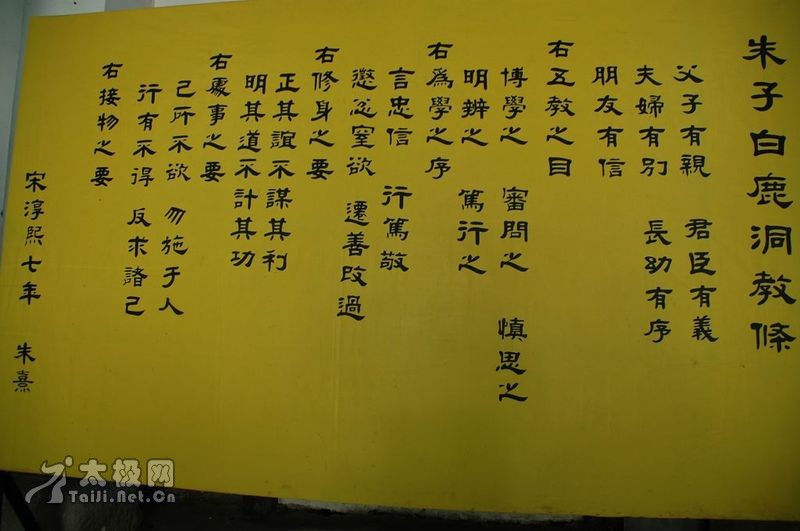 朱子白鹿洞教條
父子有親 君臣有義
夫婦有別 長幼有序
朋友有信
右五教之目
博學之 審問之 慎思之
明辨之 篤行之
右為學之序
言忠信 行篤敬
懲忿窒欲 遷善改過
右修身之要
正其誼不謀其利
明其道不計其功
右處事之要
己所不欲 勿施于人
行有不得 反求諸己
右接物之要
宋淳熙七年 朱熹
太极网
Taiji.Net.Cn